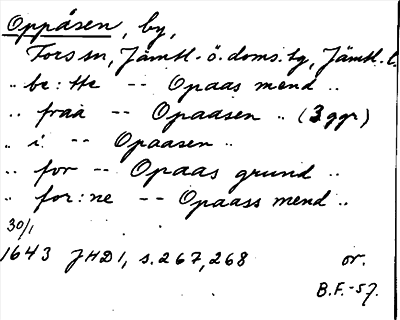 Oppåsen, by,
Fors sn, Jämtl. ö. doms. tg, Jämtl. l.
.. be:tte -- Opaas mend ..
.. fraa -- Opaasen .. (3 ggr)
.. i: -- Opaasen ..
.. for -- Opaas grund ..
.. for:ne -- Opaass mend ..
30/1
1643 JHD1, s. 267, 268 or.
B.F.-57.